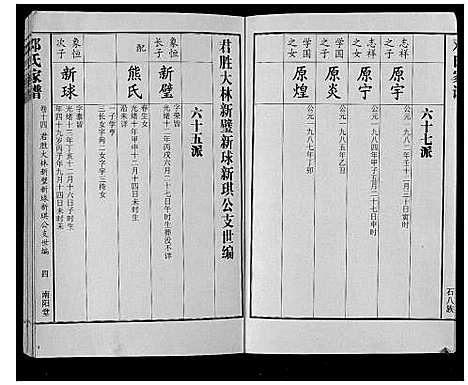 六十七派
志祥之子
原宇
公元一九八二年
志祥之女
原宁
公元一九八四年甲子五月二十七日申时
学国之子
原炎
公元一九八五年乙丑
学国之女
原煌
公元一九八七年丁卯
石八族
君胜大林新璧新球新琪公支世编
六十五派
象恒长子
新璧
字荣皆
光绪十二年丙戌六月二十七日午时生葬没不详
配
熊氏
春生女
光绪十年甲申十二月十四日未时生
沿未详
一子学亨
三长女字向二女字字三待女
象恒次子
新球
字泰皆
光绪十三年丁亥十二月十六日子时生
四十九岁丙子年九月十四日未时末
邓氏家谱
卷十四 君胜大林新璧新球新琪公支世编
四
南阳堂